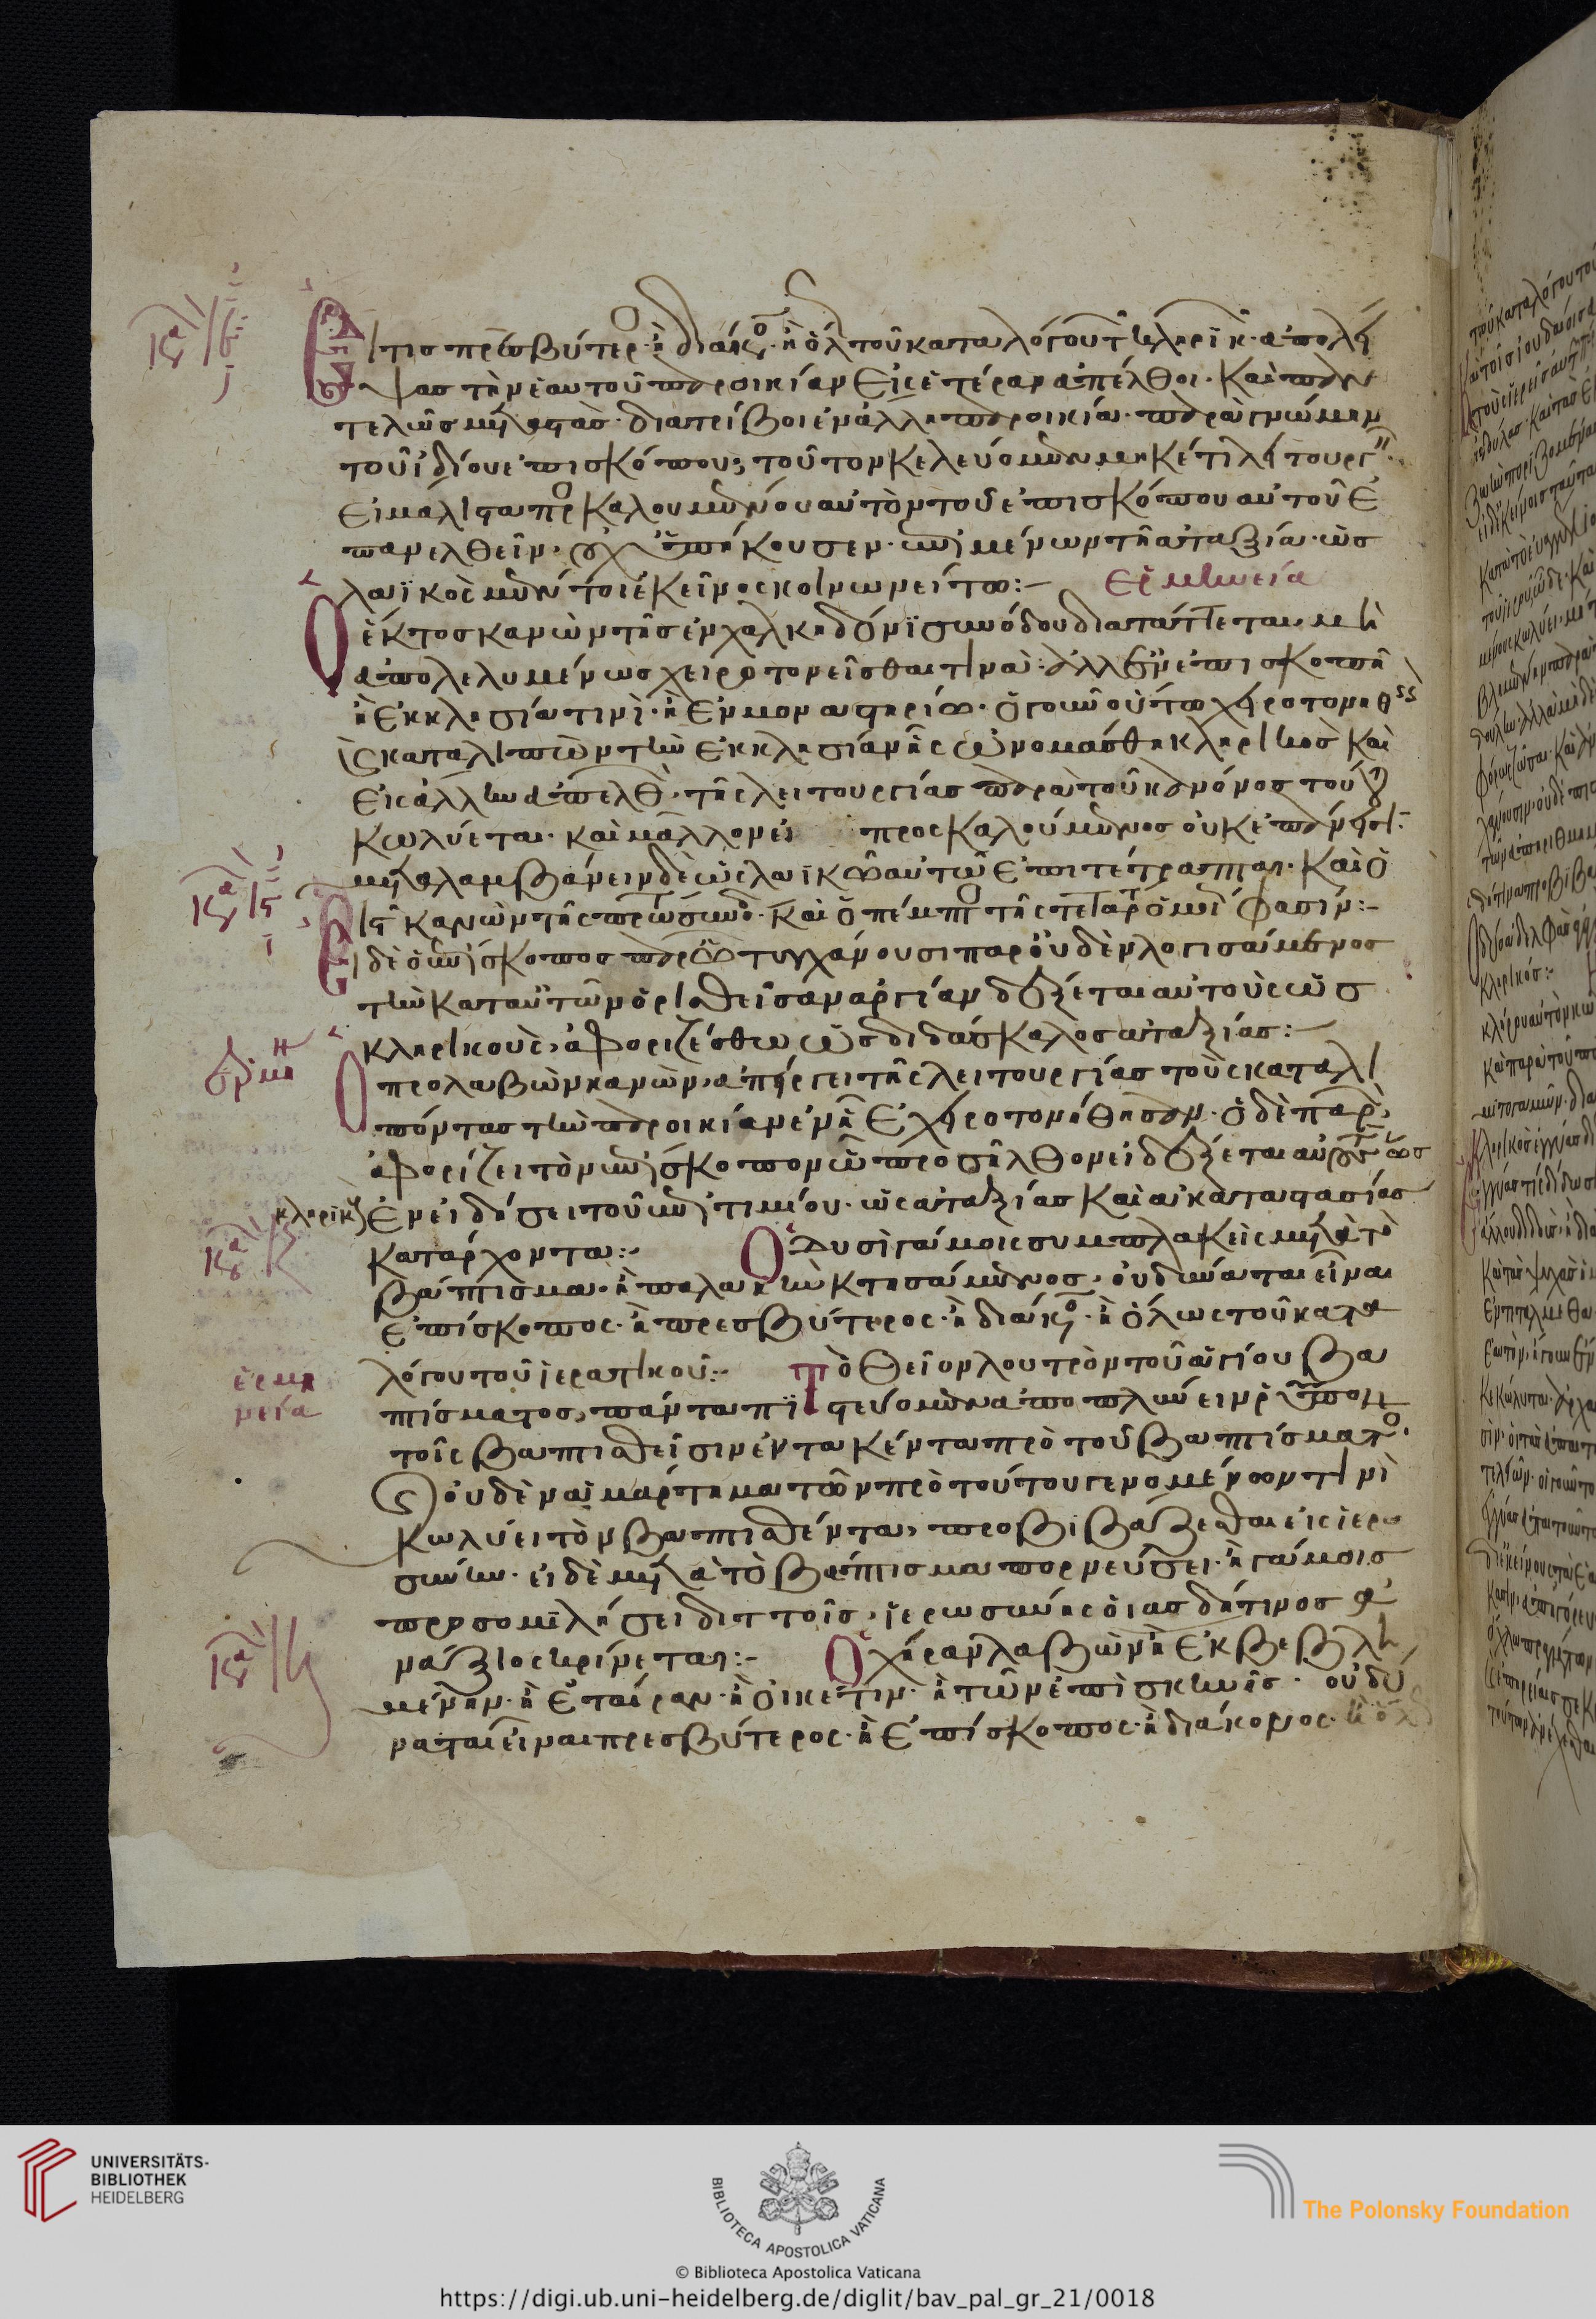 Εἴ τις πρεσβύτερ ἢ διάκ ἢ ὅλ τοῦ καταλόγου τ κληρικ ἀπολεί
ψας τὴν ἑαυτοῦ παροικίαν εἰς ἑτέραν ἀπέλθοι καὶ παν
τελῶς μεταστὰς διατρίβοι ἐν ἄλλη παροικία παρὰ γνώμην
τοῦ ἰδίου ἐπισκόπου, τοῦτον κελεύομεν μηκέτι λειτουργ
εἰ μάλιστα προσκαλουμένου αὐτὸν τοῦ ἐπισκόπου αὐτοῦ ἐ
πανελθεῖν οὐχ ὑπήκουσεν ἐπιμένων τῆ ἀταξία ὡς
λαϊκὸς μέντοι ἐκεῖνος κοινωνείτω:- ἑρμηνεία
Ὁ ἕκτος κανὼν τῆς ἐν χαλκηδόνι συνόδου διατάττεται μὴ
ἀπολελυμένως χειροτονεῖσθαι τινὰ ἀλλ' ἐν ἐπισκοπῆ
ἢ ἐκκλησία τινὶ ἢ ἐν μοναστηρίω ὁ γοῦν οὕτω χειροτονηθ
εἰς καταλιπὼν τὴν ἐκκλησίαν ἧς ὠνομάσθη κληρικὸς καὶ
εἰς ἄλλην ἀπελθ τῆς λειτουργίας παρὰ τοῦ κανόνος τού
κωλύεται καὶ μᾶλλον εἰ προσκαλούμενος οὐκ ἐπάνεισι
μεταλαμβάνειν δὲ ὡς λαϊκῶ αὐτῶ ἐπιτέτραπται καὶ ὁ
ις κανὼν τῆς πρώτ συνόδ καὶ ὁ πέμπτ τῆς τετάρτ ὅμοι φασίν:-
Εἰ δὲ ὁ ἐπίσκοπος παρ' ᾧ τυγχάνουσι παρ' οὐδὲν λογισάμενος
τὴν κατ' αὐτῶν ὁρισθεῖσαν ἀργίαν δέξεται αὐτοὺς ὡς
κληρικοὺς, ἀφοριζέσθω ὡς διδάσκαλος ἀταξίας:-
Ὁ προλαβὼν κανὼν, ἀπείργει τῆς λειτουργίας τοὺς καταλι
πόντας τὴν παροικίαν ἐν ἧ ἐχειροτονήθησαν ὁ δὲ παρ
ἀφορίζει τὸν ἐπίσκοπον ὧ προσῆλθον εἰ δέξεται αὐτοὺς ὡς
κληρικ ἐν εἰδήσει τοῦ ἐπιτιμίου ὡς ἀταξίας καὶ ἀκαταστασίας
κατάρχοντα:- Ὁ δυσὶ γάμοις συμπλακεὶς μετὰ τὸ
βάπτισμα ἢ παλλακὴν κτησάμενος, οὐ δύναται εἶναι
ἐπίσκοπος ἢ πρεσβύτερος ἢ διάκ ἢ ὅλως τοῦ κατα
λόγου τοῦ ἱερατικοῦ:- Τὸ θεῖον λουτρὸν τοῦ ἁγίου βα
πτίσματος, πάντα πιστεύομεν ἀποπλύνειν ῥύπον
τοῖς βαπτισθεῖσιν ἐντακέντα πρὸ τοῦ βαπτίσματ
οὐδὲν ἁμάρτημα τῶν πρὸ τούτου γενομένων τινὶ
κωλύει τὸν βαπτισθέντα, προβιβάζεσθαι εἰς ἱερω
σύνην εἰ δὲ μετὰ τὸ βάπτισμα πορνεύσει ἢ γάμοις
προσομιλήσει διττοῖς, ἱερωσύνης οἱασδήτινος ἀ
νάξιος κρίνεται:- Ὁ χήραν λαβὼν ἢ ἐκβεβλη
μένην ἢ ἑταίραν ἢ οἰκέτιν ἢ τῶν ἐπὶ σκηνῆς οὐ δύ
ναται εἶναι πρεσβύτερος ἢ ἐπίσκοπος ἢ διάκονος ἢ ὅλ
ἑρμη
ἑρμη
νεία
UNIVERSITÄTS-
BIBLIOTHEK
HEIDELBERG
BIBLIOTECA APOSTOLICA VATICANA
The Polonsky Foundation
© Biblioteca Apostolica Vaticana
https://digi.ub.uni-heidelberg.de/diglit/bav_pal_gr_21/0018